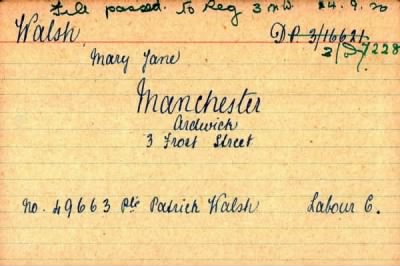 File passed to Reg 3 M.W. 24.9.20
Walsh, D.P. 3/16621
3/D/7228
Mary Jane
Manchester
Ardwick
3 Frost Street
No. 49663 Pte Patrick Walsh Labour C.